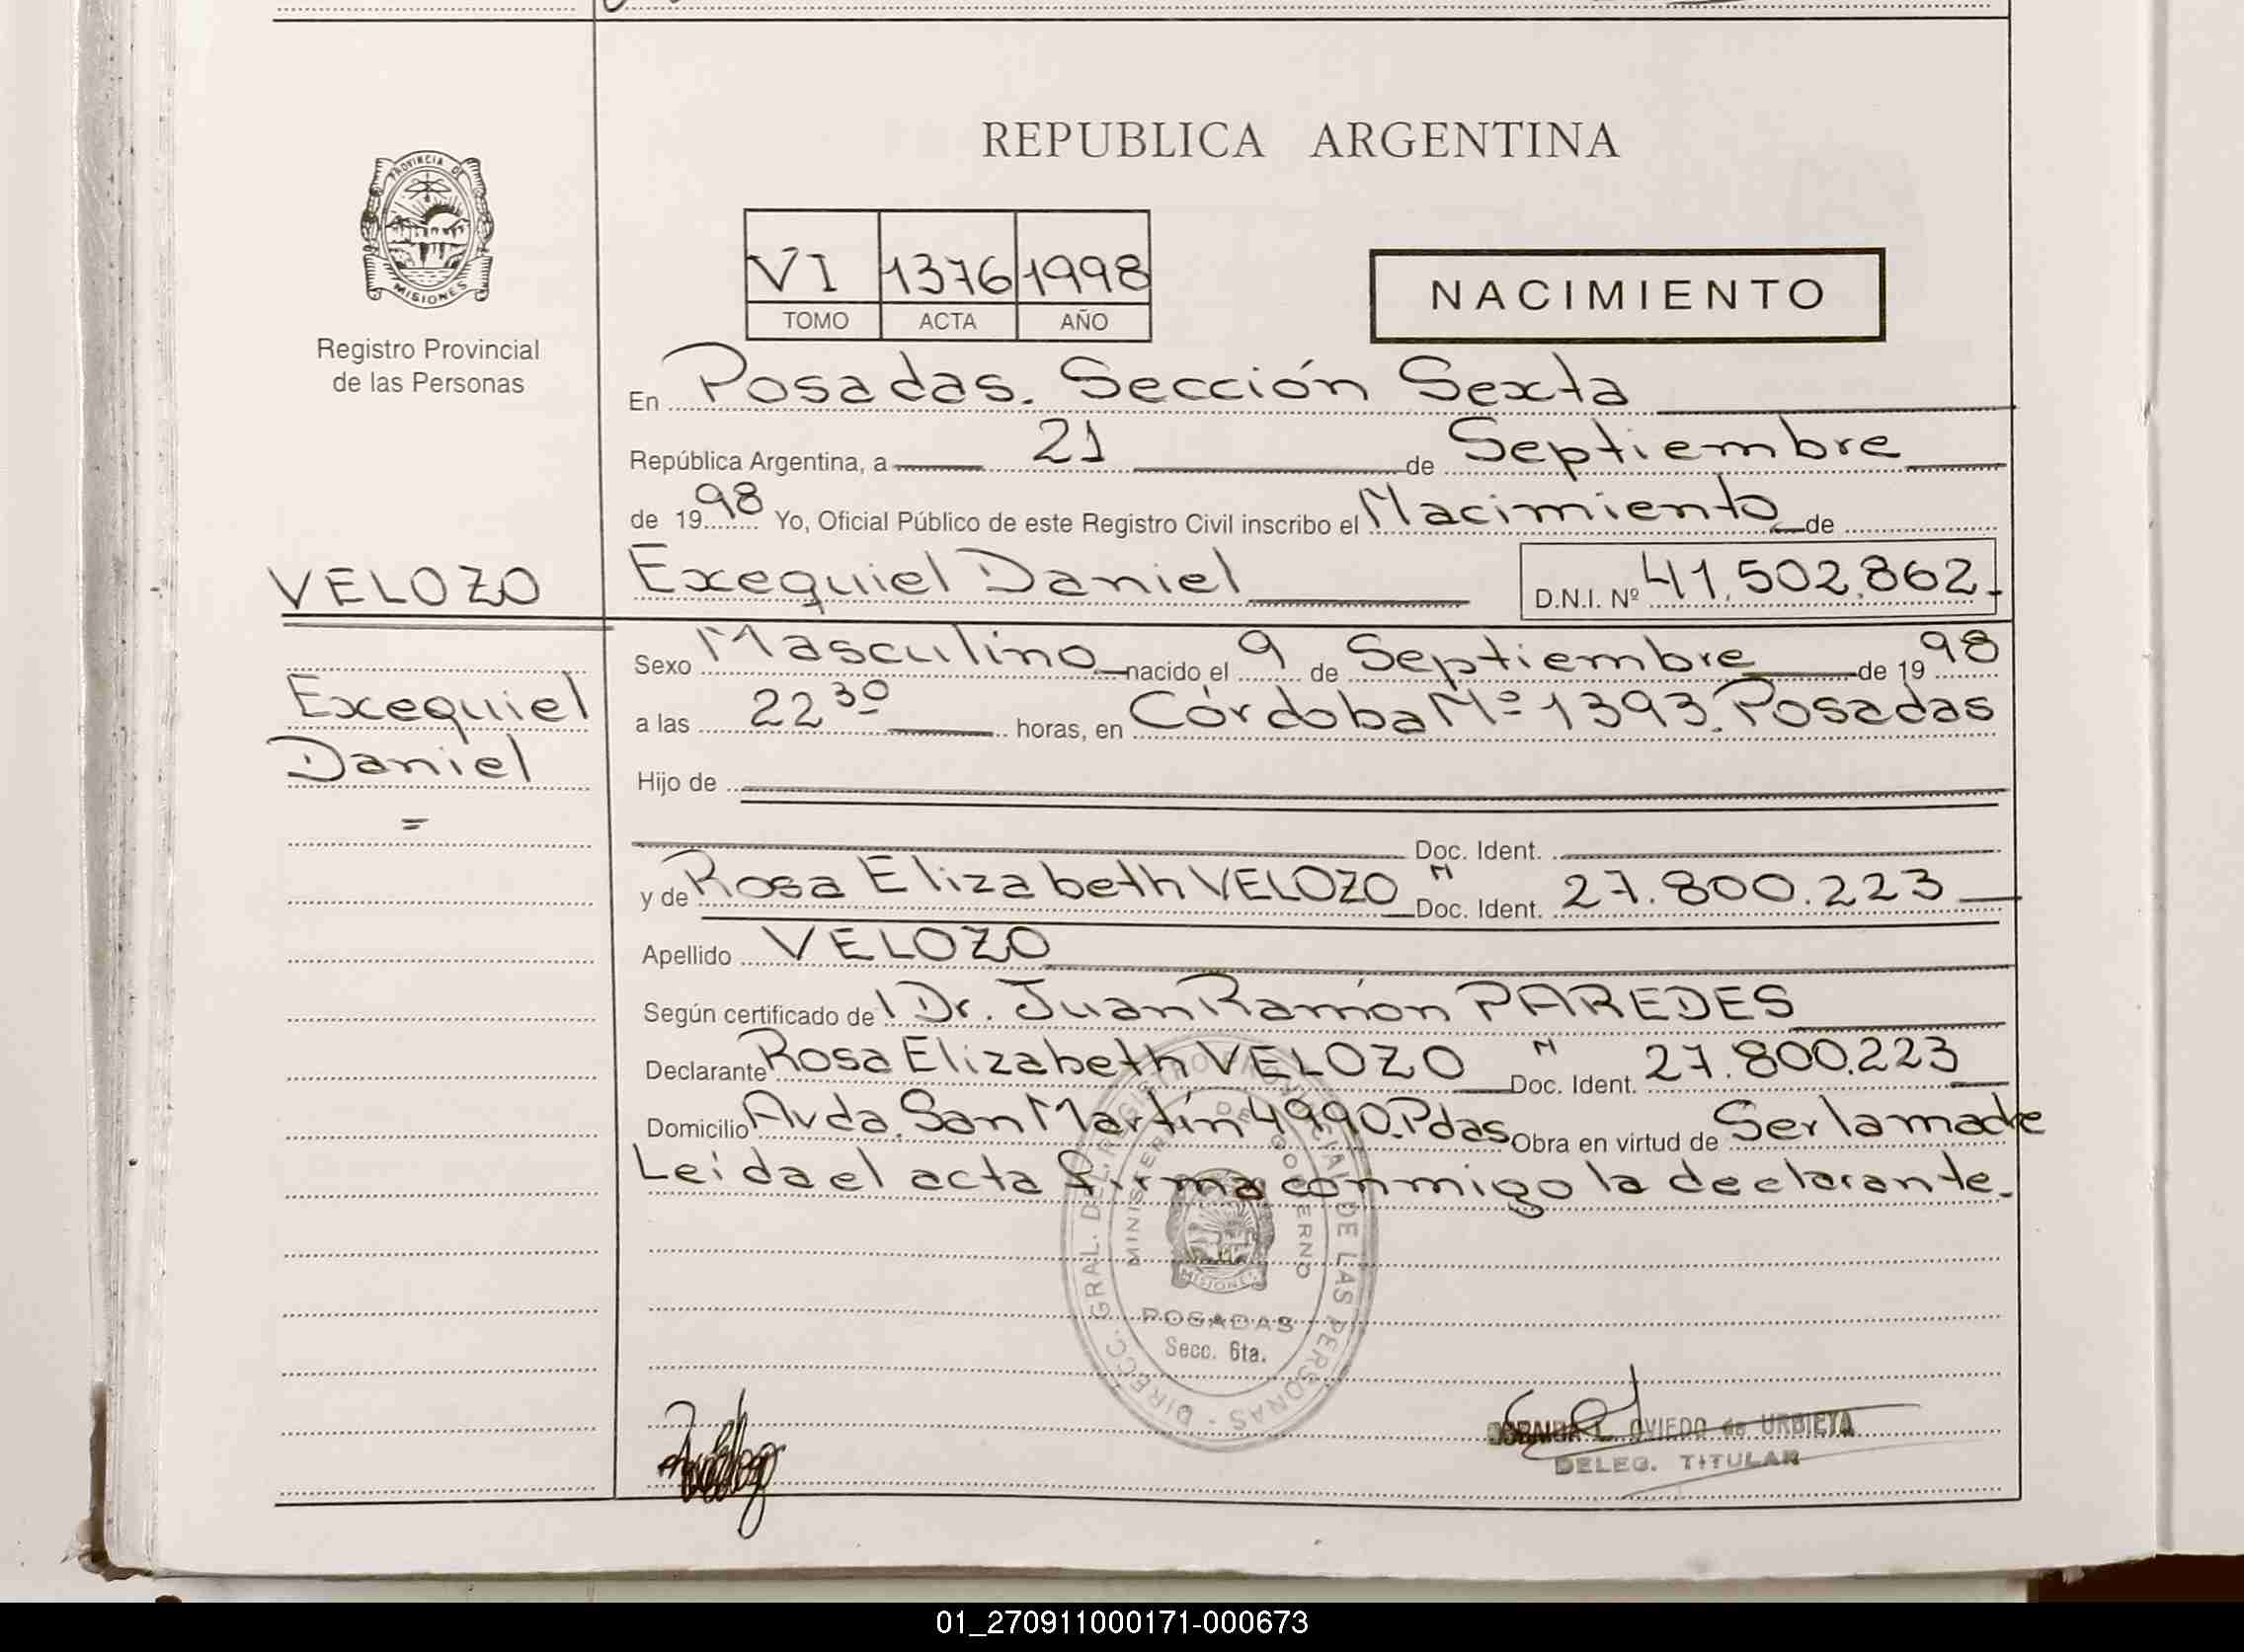 REPUBLICA ARGENTINA
PROVINCIA DE
MISIONES
Registro Provincial
de las Personas
VI 1376 1998
TOMO ACTA AÑO
NACIMIENTO
En Posadas. Sección Sexta
República Argentina, a 21 de Septiembre
de 1998 Yo, Oficial Público de este Registro Civil inscribo el Nacimiento de
VELOZO
Exequiel Daniel D.N.I. Nº 41.502.862
Exequiel
Daniel
Sexo Masculino nacido el 9 de Septiembre de 1998
a las 22 30 horas, en Córdoba Nº 1393. Posadas
Hijo de
Doc. Ident.
y de Rosa Elizabeth VELOZO Doc. Ident. 27.800.223
Apellido VELOZO
Según certificado de Dr. Juan Ramón PAREDES
Declarante Rosa Elizabeth VELOZO Doc. Ident. 27.800.223
Domicilio Avda. San Martín 4990. Pdas Obra en virtud de Ser la madre
Leída el acta firma conmigo la declarante.
DIRECC. GRAL. DEL REGISTRO PROVINCIAL DE LAS PERSONAS
MINISTERIO DE GOBIERNO
MISIONES
POSADAS
Secc. 6ta.
L. OVIEDO de URBIETA
DELEG. TITULAR
01_270911000171-000673